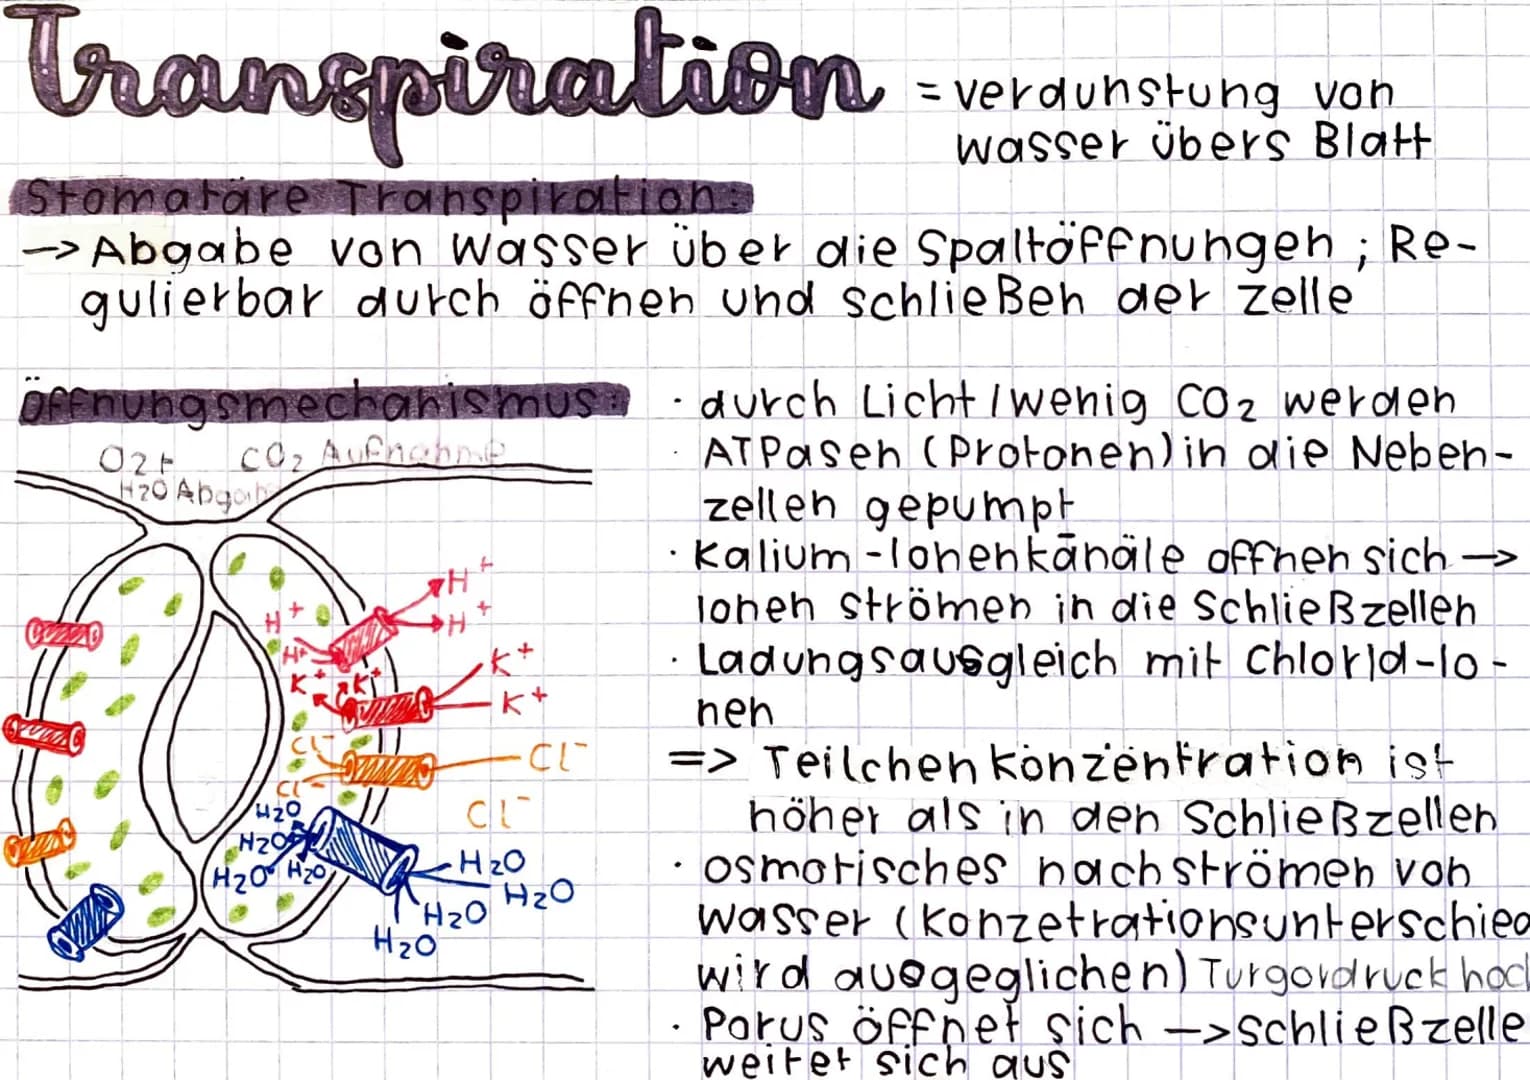 Transpiration = verdunstung von
wasser übers Blatt
Stomatäre Transpiration:
-> Abgabe von Wasser über die Spaltöffnungen ; Re-
gulierbar durch öffnen und schließen der Zelle
Öffnungsmechanismus:
O2+ CO2 Aufnahme
H2O Abgab
H+
H+
H+
H+
K+
K+
K+
K+
Cl-
Cl-
Cl-
Cl-
H2O
H2O
H2O
H2O
H2O
H2O
H2O
H2O
· durch Licht / wenig CO2 werden
· ATPasen (Protonen) in die Neben-
zellen gepumpt
· Kalium-Ionenkänäle offnen sich ->
Ionen strömen in die Schließzellen
· Ladungsausgleich mit Chlorid-Io-
nen
=> Teilchenkonzentration ist
höher als in den Schließzellen
· osmotisches nachströmen von
Wasser (Konzetrationsunterschied
wird ausgeglichen) Turgordruck hoch
· Porus öffnet sich -> Schließzelle
weitet sich aus